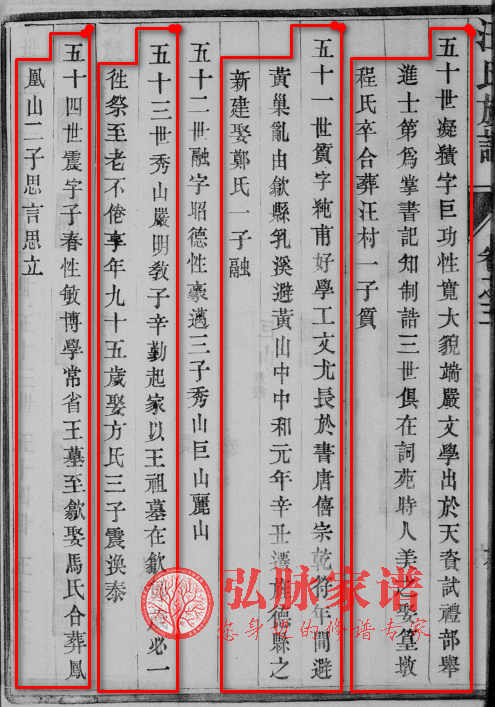 氏族譜
五十世凝績字巨功性寬大貌端嚴文學出於天資試禮部舉
進士第爲掌書記知制誥三世俱在詞苑時人美之娶篁墩
程氏卒合葬汪村一子質
五十一世質字純甫好學工文尤長於書唐僖宗乾符年間避
黃巢亂由歙縣乳溪避黃山中中和元年辛丑遷旌德縣之
新建娶鄭氏一子融
五十二世融字昭德性豪邁三子秀山巨山麗山
五十三世秀山嚴明教子辛勤起家以王祖墓在歙必一
徃祭至老不倦享年九十五歲娶方氏三子震渙泰
五十四世震字子春性敏博學常省王墓至歙娶馬氏合葬鳳
凰山二子思言思立
弘脉家谱
您身边的修谱专家